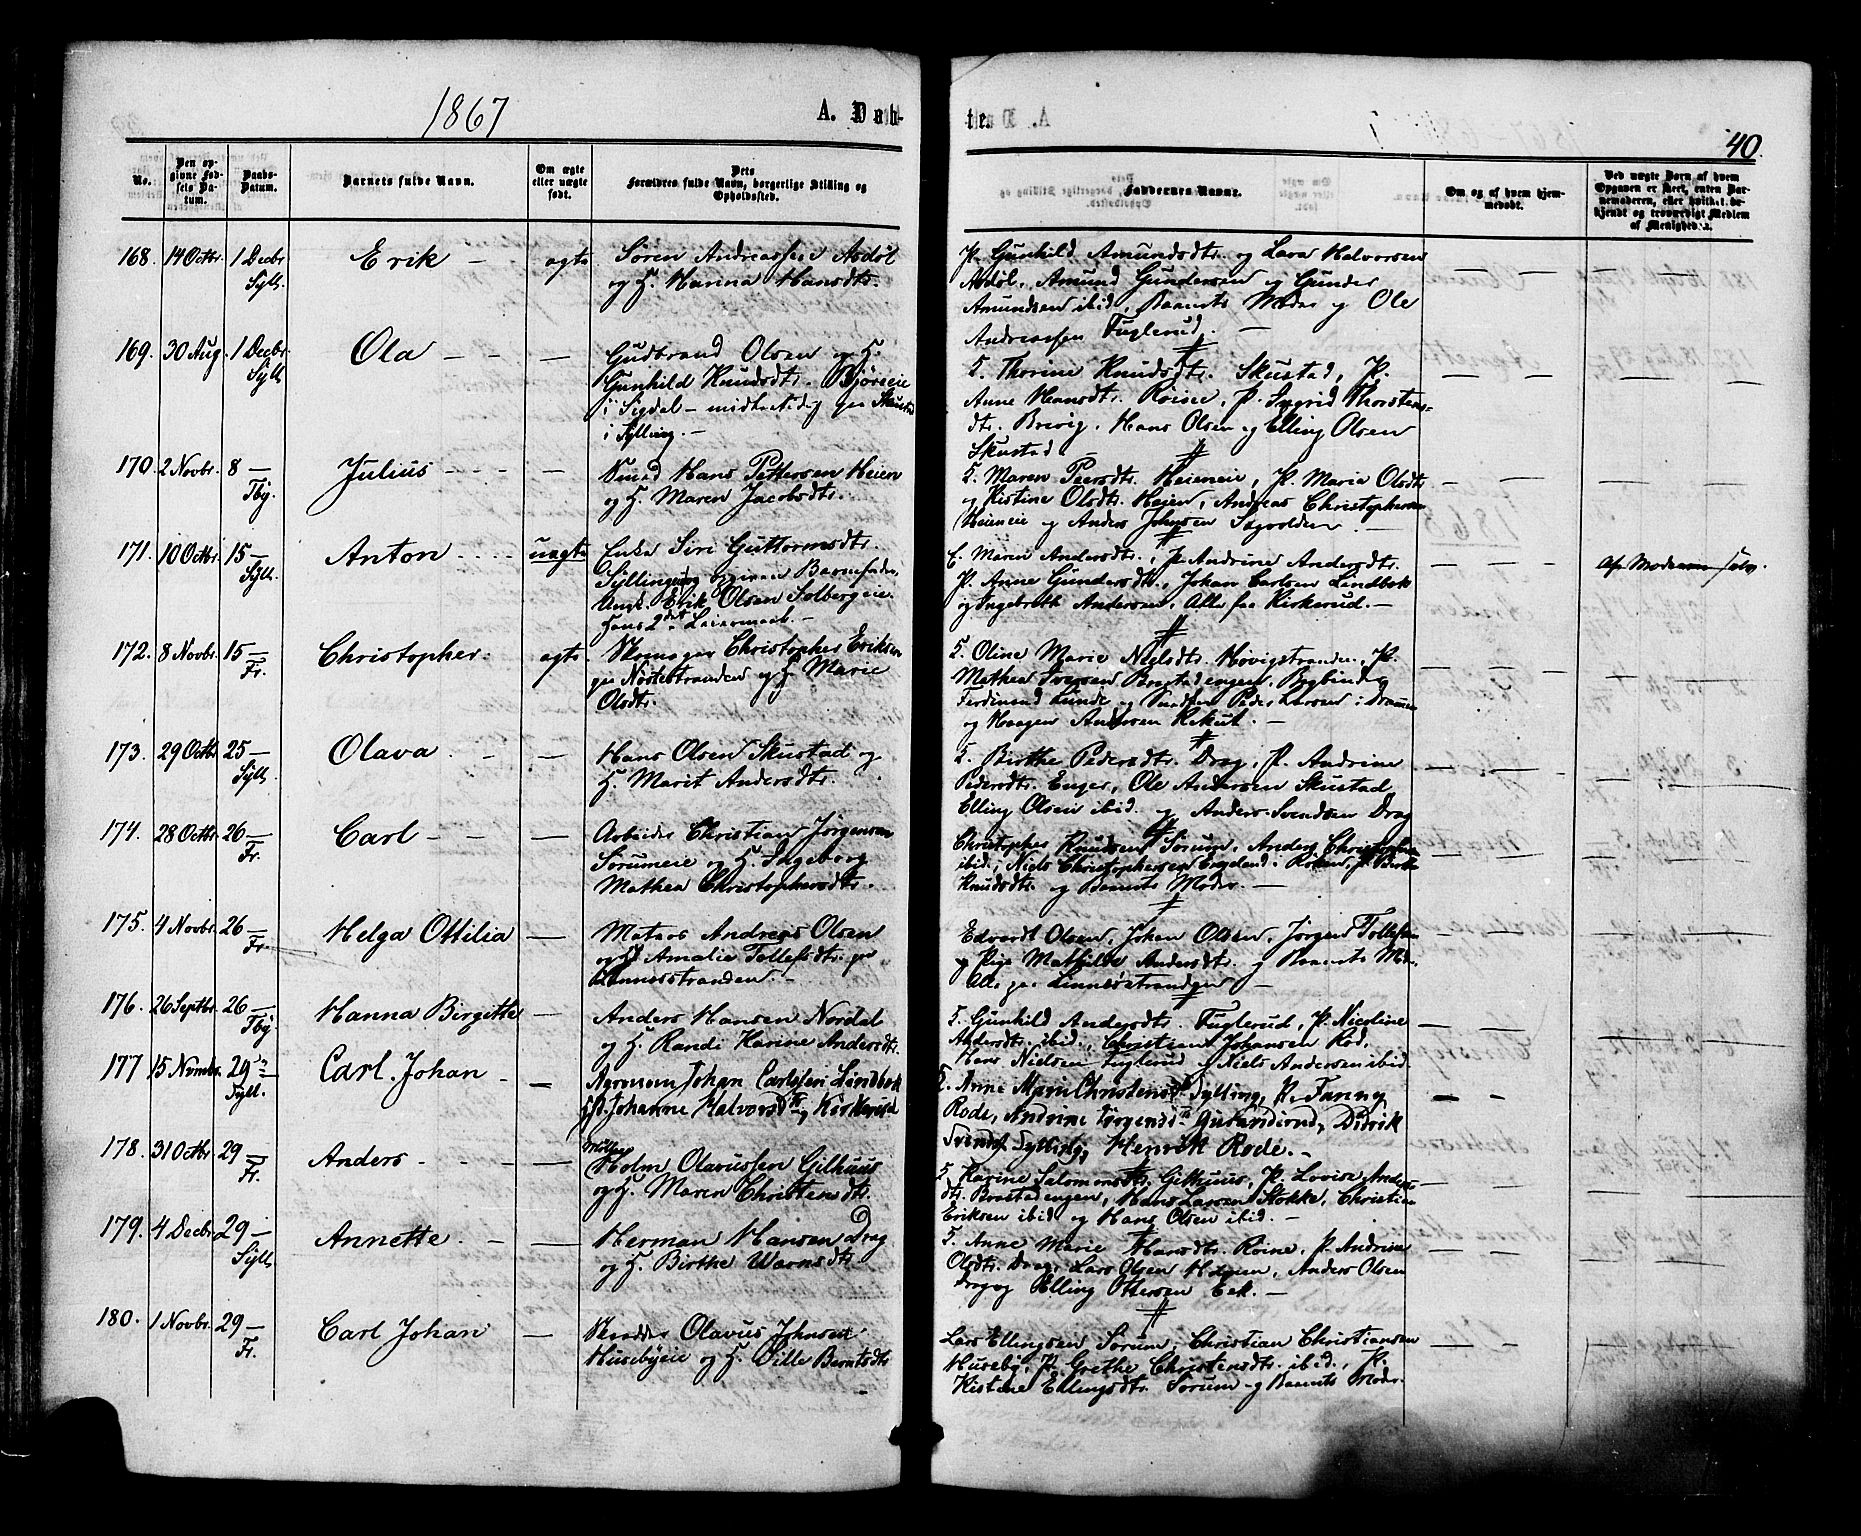 1867
A. Døb-
te.
40.
No.
Den opgivne Fødsels Datum.
Daabs-Datum.
Barnets fulde Navn.
Om ægte eller uægte født.
Dets Forældres fulde Navn, borgerlige Stilling og Opholdssted.
Faddernes Navne.
Om og af hvem hjemmedøbt.
Ved uægte Børn af hvem Opgaven er skeet, enten Barnemoderen, eller hvilket bekjendt og troværdigt Medlem af Menigheden.
168. 14 Octbr. 1 Decbr. Syll. Erik - ægte
Søren Andreassen Asdøl
og H. Marina Hansdtr.
P. Gunhild Amundsdtr. og Lava Halvorsen
Asdøl, Amund Gundersen og Gunder
Amundsen ibid, Barnets Moder og Ole
Andreassen Fuglerud. —
169. 30 Aug. 1 Decbr. Syll Ola - - —
Gudbrand Olsen og H.
Gunhild Knudsdtr. Bjøreeie
i Sigdal - midlertidig paa Skustad
i Sylling. —
S. Thorine Knudsdtr. Skustad, P.
Anne Hansdtr. Roine, P. Sygrid Thorstens=
dtr. Brevig, Hans Olsen og Elling Olsen
Skustad
170. 2 Novbr. 8 — Tby. Julius - - - —
Smed Hans Pettersen Heien
og H. Maren Jacobsdtr.
S. Maren Peersdtr. Heieneie, P. Maria Olsdtr
og Kistine Olsdtr. Heien, Andreas Christophersen
Heieneie og Anders Johnsen
171. 10 Octbr. 15 — Syll. Anton - - - uægte
Enke Siri Guttormsdtr.
opgiven Barnefader
Ungk. Erik Olsen Solbergeie.
Hans 2det Leiermaal. —
E. Maren Andersdtr., P. Andrine Andersdtr.
P. Anne Gundersdtr., Johan Carlsen Lindbok
og Ingebreth Andersen, Alle paa Kirkerud. —
Af Moderen selv.
172. 8 Novbr. 15 — Fr. Christopher. ægte
Christopher Eriksen
paa Nøstestranden og H. Marie
Olsdtr.
S. Oline Marie Nielsdtr. Høvigstranden, P.
Mathea Svensen Brastadengen,
Ferdinand Lunde og Peder Larsen i Drammen
og Haagen Andersen
173. 29 Octbr 25 — Syll. Olava - - —
Hans Olsen Skustad og
H. Marit Andersdtr.
S. Birthe Pedersdtr. Drag, P. Andrine
Pedersdtr. Enger, Ole Andersen Skustad
Elling Olsen ibid. og Anders Svendsen Drag
174. 28 Octbr. 26 — Fr. Carl - - —
Arbeider Christian Jørgensen
Sørumeie og H. Ingeborg
Mathea Christophersdtr.
Christopher Knudsen Sørum, Anders Christophersen
ibid., Niels Christophersen Engdend. Røken, P. Birthe
Knudsdtr. og Barnets Moder. —
175. 4 Novbr. 26 — Fr. Helga Ottilia —
Matros Andreas Olsen
og H Amalie Tollefsdtr. paa
Linnesstranden —
Edvardt Olsen, Johan Olsen, Jørgen Tollefsen
og Pige Mathilde Andersdtr. og Barnets Mod.
Alle paa Linnesstranden
176. 26 Septbr. 26 — Tby. Hanna Birgitte —
Anders Hansen Nordal
og H. Randi Karine Andersdtr.
S. Gunhild Andersdtr. Fuglerud, P. Nicoline
Andersdtr. ibid., Christian Johansen Rød,
Hans Nielsen Fuglerud og Niels Andersen ibid.
177 15 Novbr. 29 — Syll. Carl Johan - —
Johan Carlssen Lindbok
H. Johanne Halvorsdtr. Kirkerud
S. Anne Marie Christensdtr Sylling, P. Fanny
Rode, Andrine Jørgensdtr Didrik
Svends. Sylling, Henrik Rode. —
178. 31 Octbr. 29 — Fr. Anders - - - —
Møller
Holm Olavussen Gilhuus
og H. Maren Christensdtr.
S. Karine Salomonsdtr. Gilhuus, P. Lovise Anders
dtr. Brastadengen, Hans Larsen Stokke, Christian
Eriksen ibid og Hans Olsen ibid. —
179. 4 Decbr. 29 — Syll Annette. - —
Herman Hansen Drag
og H. Birthe Warnsdtr.
S. Anne Marie Hansdtr. Roine, P. Andrine
Olsdtr. Drag, Lars Olsen Anders Olsen
Drag og Elling Ottersen Eek. —
180. 1 Novbr. 29 — Fr. Carl Johan —
Skrædder Olavus Johnsen
Husebyeie og H. Sille Berntsdtr
Lars Ellingsen Sørum, Christian Christiansen
Huseby, P. Grethe Christensdtr. ibid., P.
Kistine Ellingsdtr. Sørum og Barnets Moder.